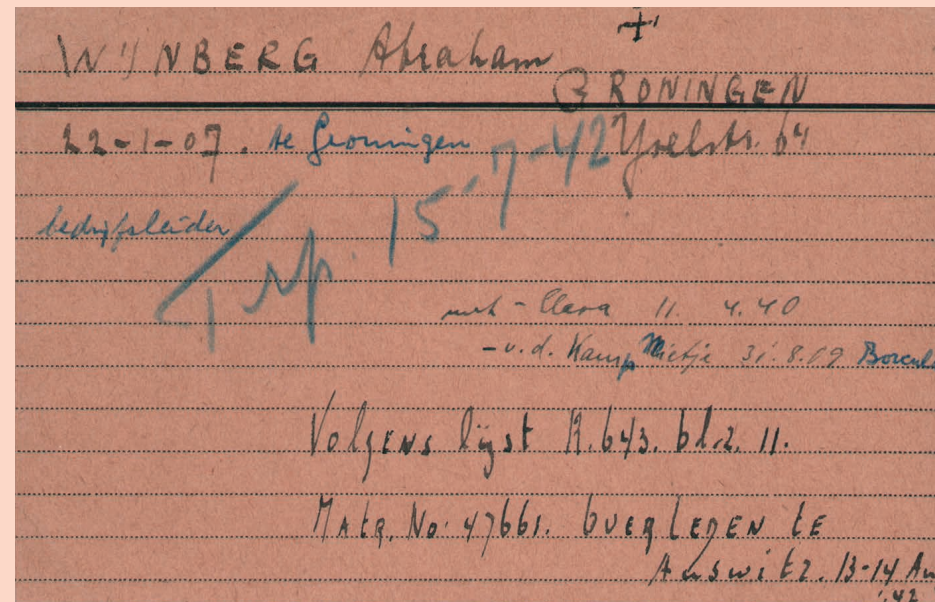 +
WIJNBERG Abraham
GRONINGEN
22-1-07. te Groningen
64
bedrijfsleider
Trp. 15-7-42
- Clara 11. 4. 40
- v.d. Kamp Mietje 31.8.09 Borcul
Volgens lijst R.643. bl.2. 11.
Matr. No. 47661. overleden te
Auswitz. 13-14 Au
42